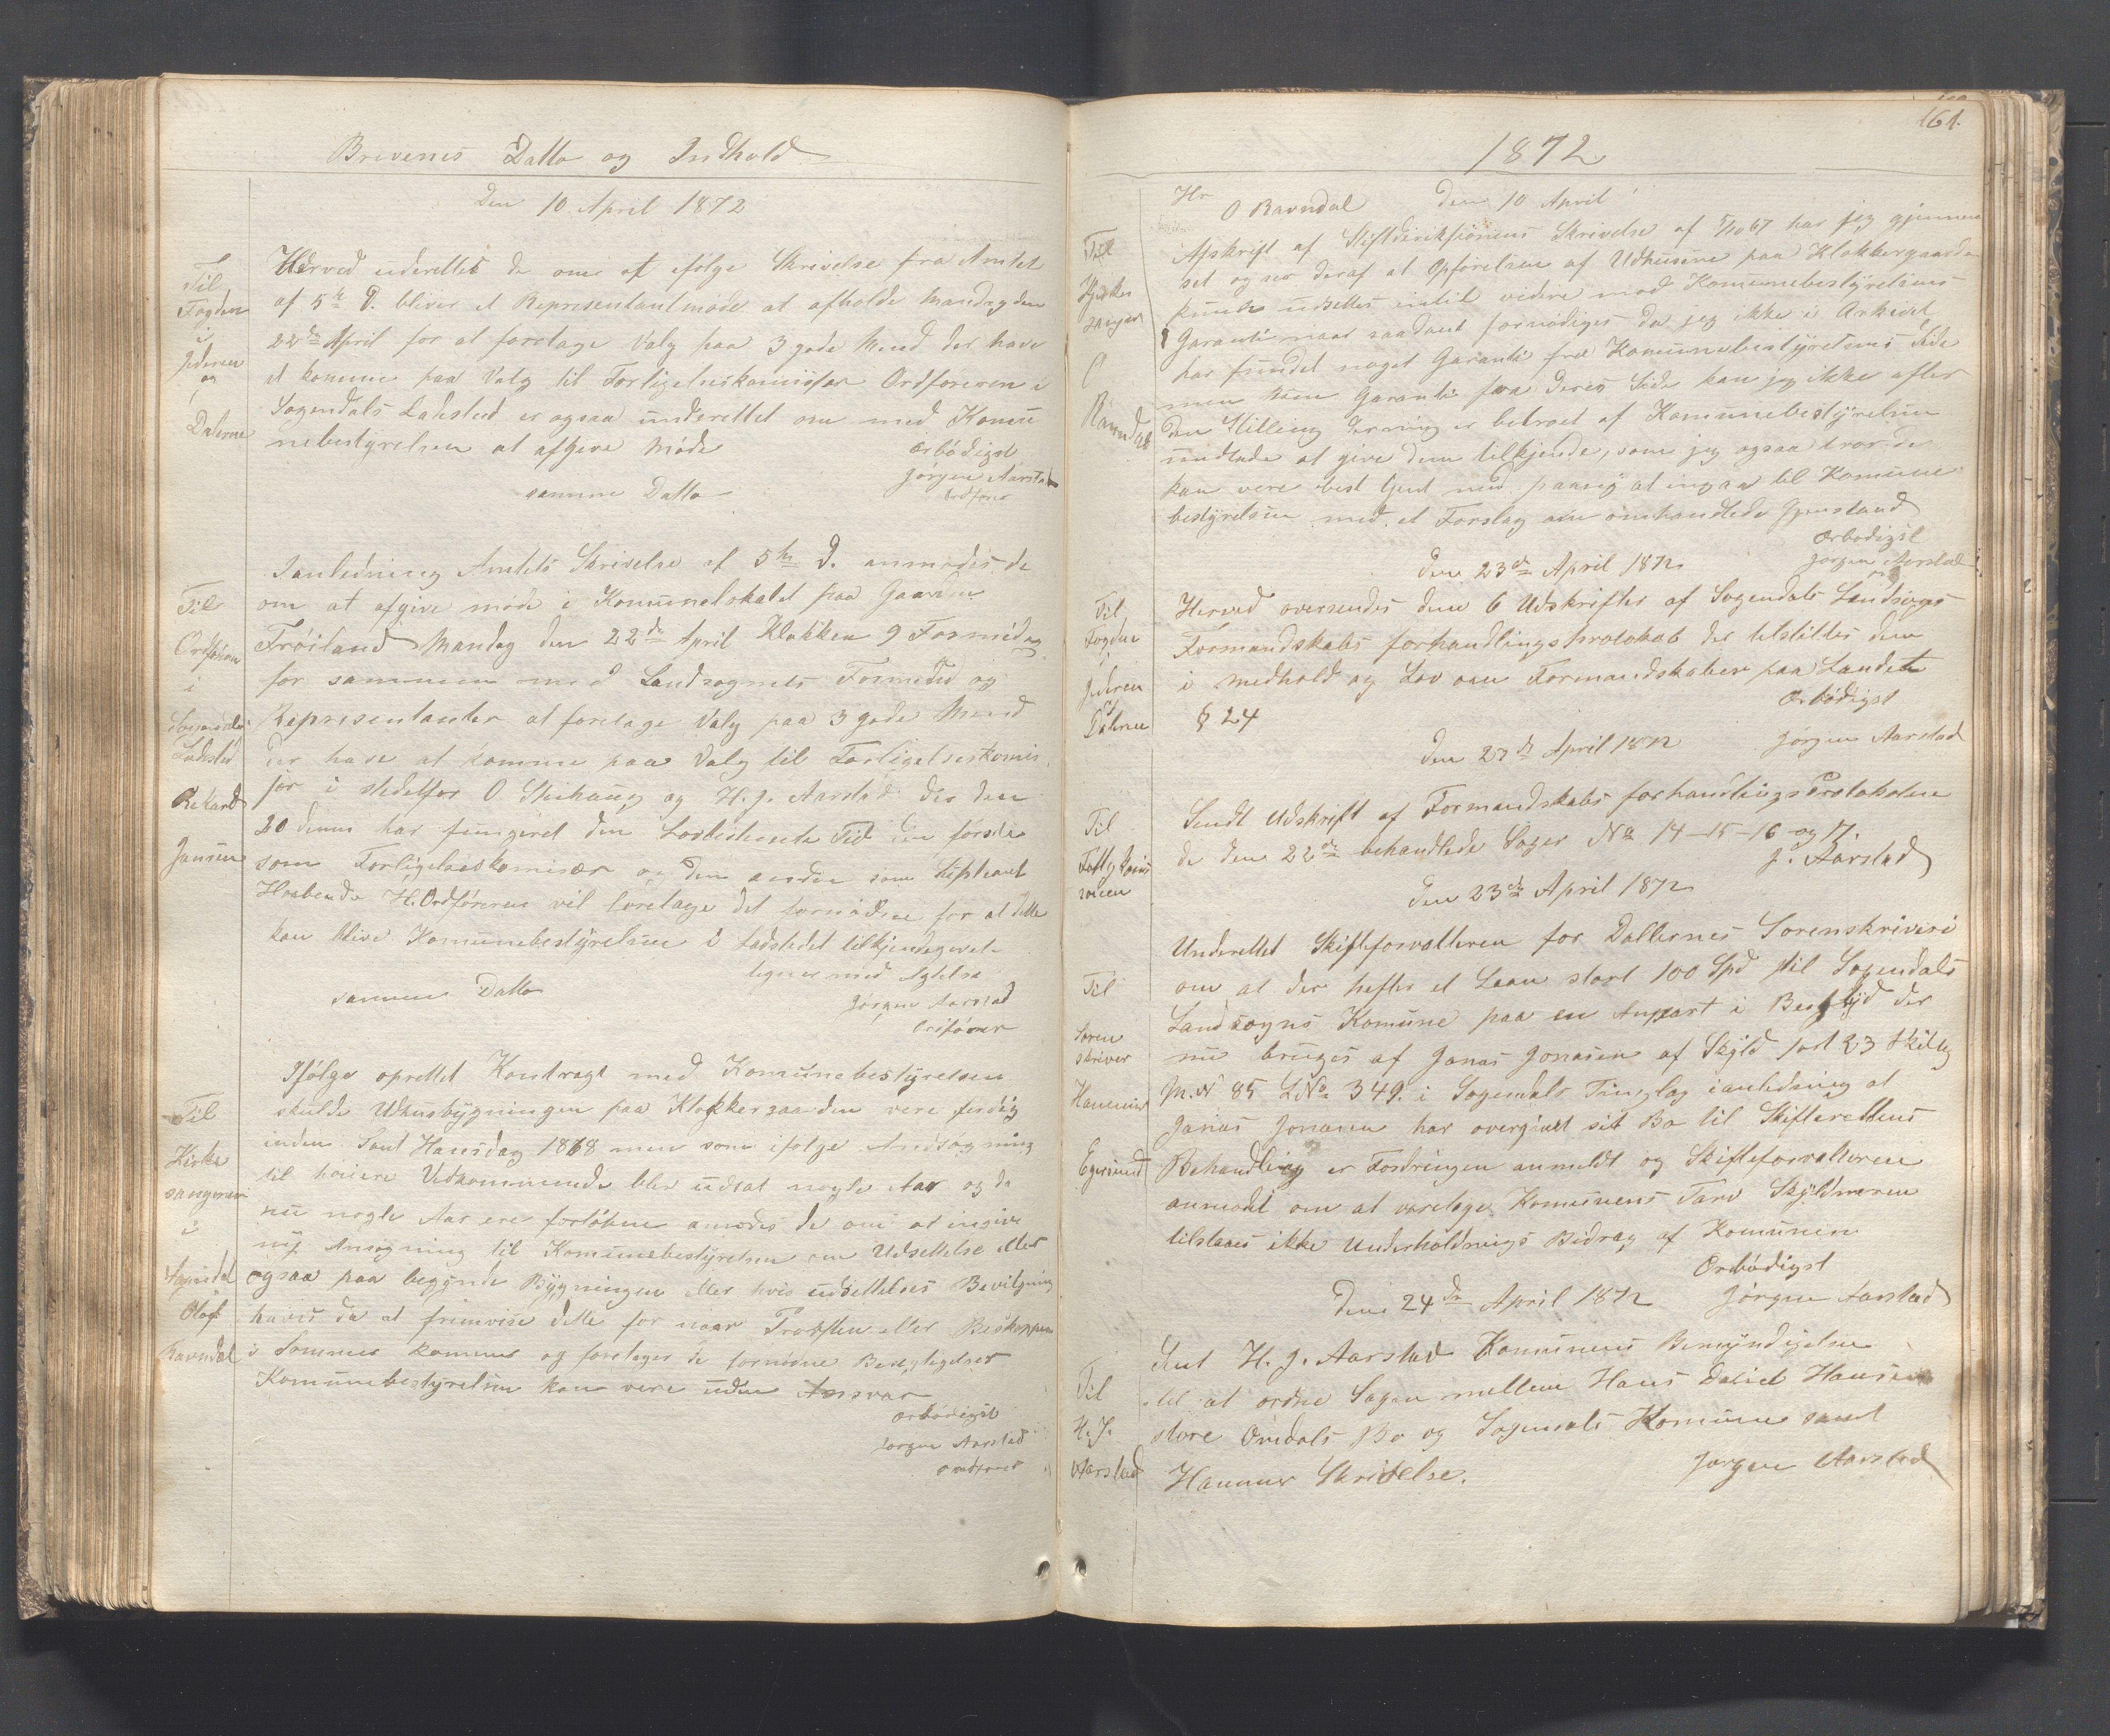 Brevenes Datto og Indhold
Den 10 April 1872
Til
Fogden
i
Jederen
og
Dalerne
Herved uderettes de om at ifølge Skrivelse fra Amtet
af 5te d. bliver et Representantmøde at afholde Mandag den
22de April for at foretage Valg paa 3 gode Mend der have
at komme paa Valg til Forligelseskomissær Ordføreren i
Sogendals Ladested er ogsaa underettet om med Komu
nebestyrelsen at afgive Møde
Ærbødigst
Jørgen Aarstad
Ordfører
samme Datto
Til
Ordføren
i
Sogendals
Ladested
Rekard
Jansen
Ianledning Amtets Skrivelse af 5te d. anmodes de
om at afgive møde i Komunelokalet paa Gaarden
Frøiland Mandag den 22de April Klokken 9 Formidag
for sammen med Landsognets Formend og
Representanter at foretage Valg paa 3 gode Mend
der have at komme paa Valg til Forligelseskomis
sør i stedetfor O Skihaug og H. J. Aarstad der den
20 denne har fungeret den Lovbestemte Tid den første
som Forligelseskomisær og den anden som Supleant
H. Ordføreren vil foretage det fornødne for at dette
kan blive Komunebestyrelsen i Ladstedet tilkjendegivet
tegner med Agtelse
Jørgen Aarstad
Ordfører
samme Datto
Til
Kirke
sangeren
i
Sogndal
Oluf
Ravndal
Ifølge oprettet Kontragt med Komunebestyrelsen
skulde Udhusbygningen paa Klokkergaarden vere ferdig
inden Sant Hansdag 1868 men som ifølge Andsøgning
til høiere Vedkommende blev udsat nogle Aar og da
nu nogle Aar ere forløbne amodes de om at ingive
ny Ansøgning til Komunebestyrelsen om Udsettelse eller
ogsaa paa begynde Bygningen eller hvis udsettelses Bevilgning
haves da at fremvise dette for naar Probsten eller Biskoppen
i Sommer kommer og foretager de fornødne Besegtigelser
Komunebestyrelsen kan vere uden Ansvar
Ærbødigst
Jørgen Aarstad
Ordfører
161.
1872
Hr
O Ravndal
Den 10 April
Til
Kirke
sanger
O
Ravndal
Afskrift af Stiftdirektionens Skrivelse af 5/10 67 har jeg gjennem
set og ser deraf at Opførelsen af Udhusene paa Klokkergaarden
kunde udsettes indtil videre mod Komunebestyrelsens
Garanti naar saadant fornødiges da jeg ikke i Arkivet
har fundet noget Garanti fra Komunebestyrelsens Side
men kun Garanti fra Deres Side kan jeg ikke efter
den Stilling Jerning er betroet af Komunebestyrelsen
undlade at give dem tilkjende, som jeg ogsaa tror de
kan vere best tjent med paany at ingaa til Komune
bestyrelsen med et Forslag om omhandlede Gjenstand
Ærbødigst
Jørgen Aarstad
Den 23de April 1872
Til
Fogden
i
Jederen
og
Dalerne
Herved oversendes dem 6 Udskrifter af Sogendals Landsogns
Formandskabs forhandlingsprotokol der tilstilles dem
i medhold af Lov om Formandskaber paa Landet
§ 24
Ærbødigst
Jørgen Aarstad
Den 23de April 1872
Til
Fattigkomis
sionen
Sendt Udskrift af Formandskabs forhandlingsprotokolen
de den 22de behandlede Sager No 14-15-16 og 17.
J. Aarstad
Den 23de April 1872
Til
Soren
skriver
Egersund
Underettet Skifteforvalteren for Dallernes Sorenskriveri
om at der hefter et Laan stort 100 Spd til Sogendals
Landsogns Komune paa en Anpart i der
nu bruges af Janas Jonasen af Skyld 1 ort 23 Skillig
M. N 85 LNo 349. i Sogendals Tinglag ianledning at
Janas Jonasen har overgivet sit Bo til Skifterettens
Behandling er Fordringen anmeldt og Skifteforvalteren
anmodet om at varetage Komunens Tarv Skyldneren
tilstaaes ikke Underholdnings Bidrag af Komunen
Ærbødigst
Jørgen Aarstad
Den 24de April 1872
Til
H. J.
Aarstad
Sent H. J. Aarstad Komunens Bemyndigelse
til at ordne Sagen mellem Hans David Hansen
store Omdals Bo og Sogendals Komune samt
Skrivelse.
Jørgen Aarstad